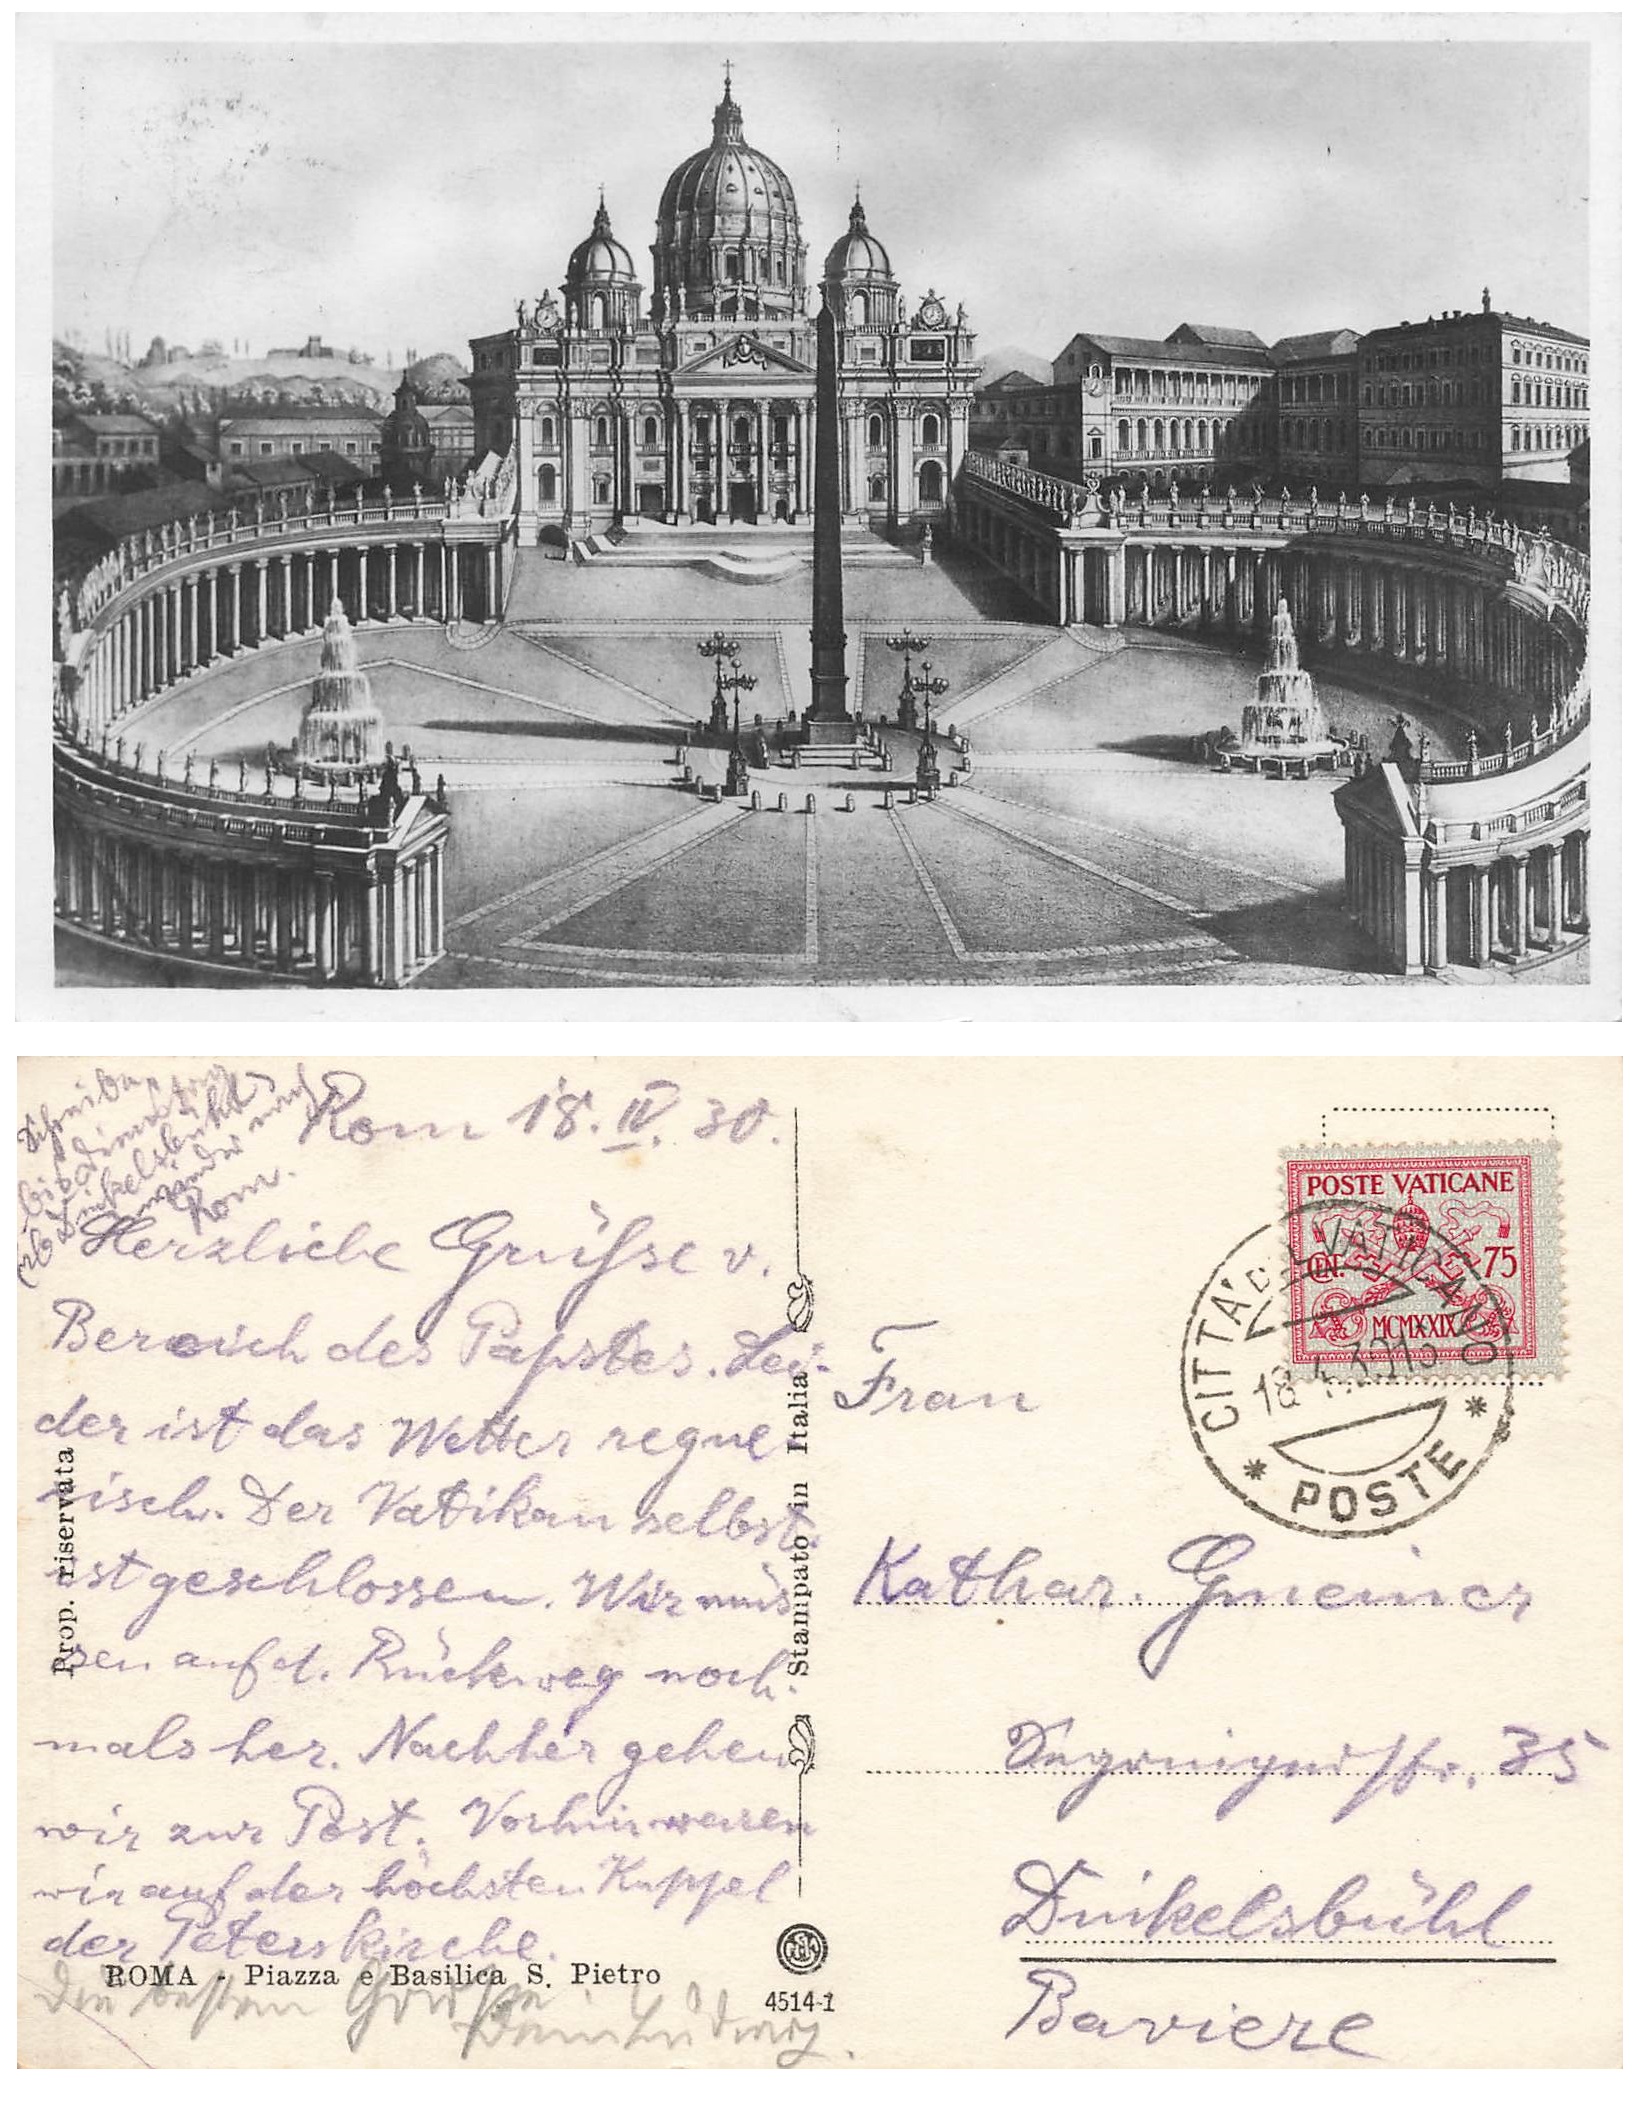 Rom 18. IV. 30.
Schreiben
bis Dienstag
Dinkelsbühl
Rom.
Herzliche Grüße v.
Bereich des Papstes. Lei-
der ist das Wetter regne-
risch. Der Vatikan selbst
ist geschlossen. Wir müs
sen auf d. Rückweg noch-
mals her. Nachher gehen
wir zur Post. Vorhin waren
wir auf der höchsten Kuppel
der Peterskirche.
Die besten Grüße
Dein Ludwig.
Prop. riservata
Stampato in Italia
ROMA - Piazza e Basilica S. Pietro
4514-1
POSTE VATICANE
CEN. 75
MCMXXIX
CITTÀ DEL VATICANO
18
POSTE
Frau
Kathar. Gmeiner
str. 35
Dinkelsbühl
Baviere